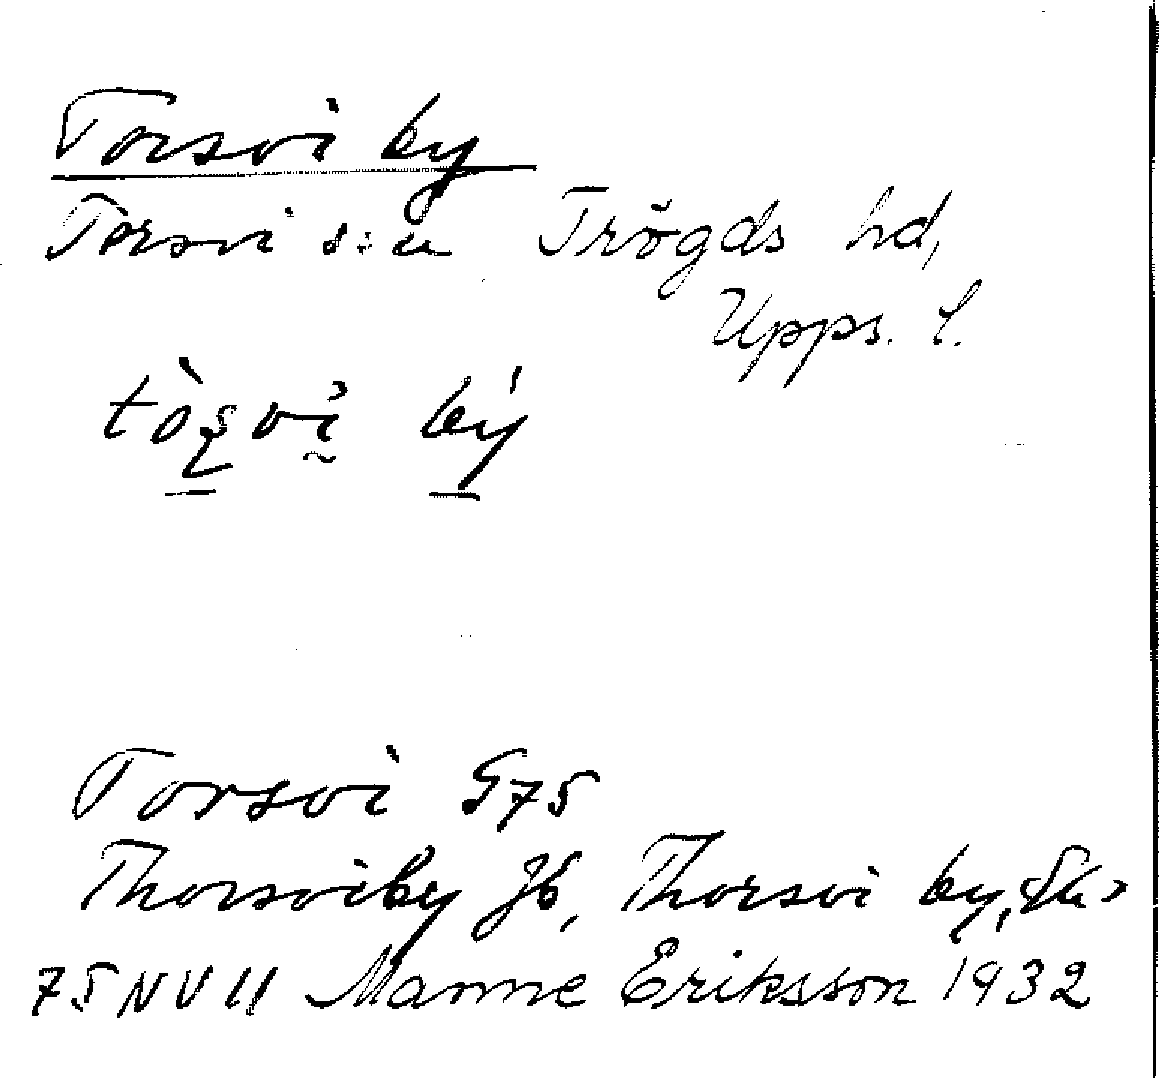 Torsvi by
Torsvi s:n Trögds hd,
Upps. l.
by
Torsvi G75
Thorsviby Jb, Thorsvi by,
75 NV 11 Manne Eriksson 1932